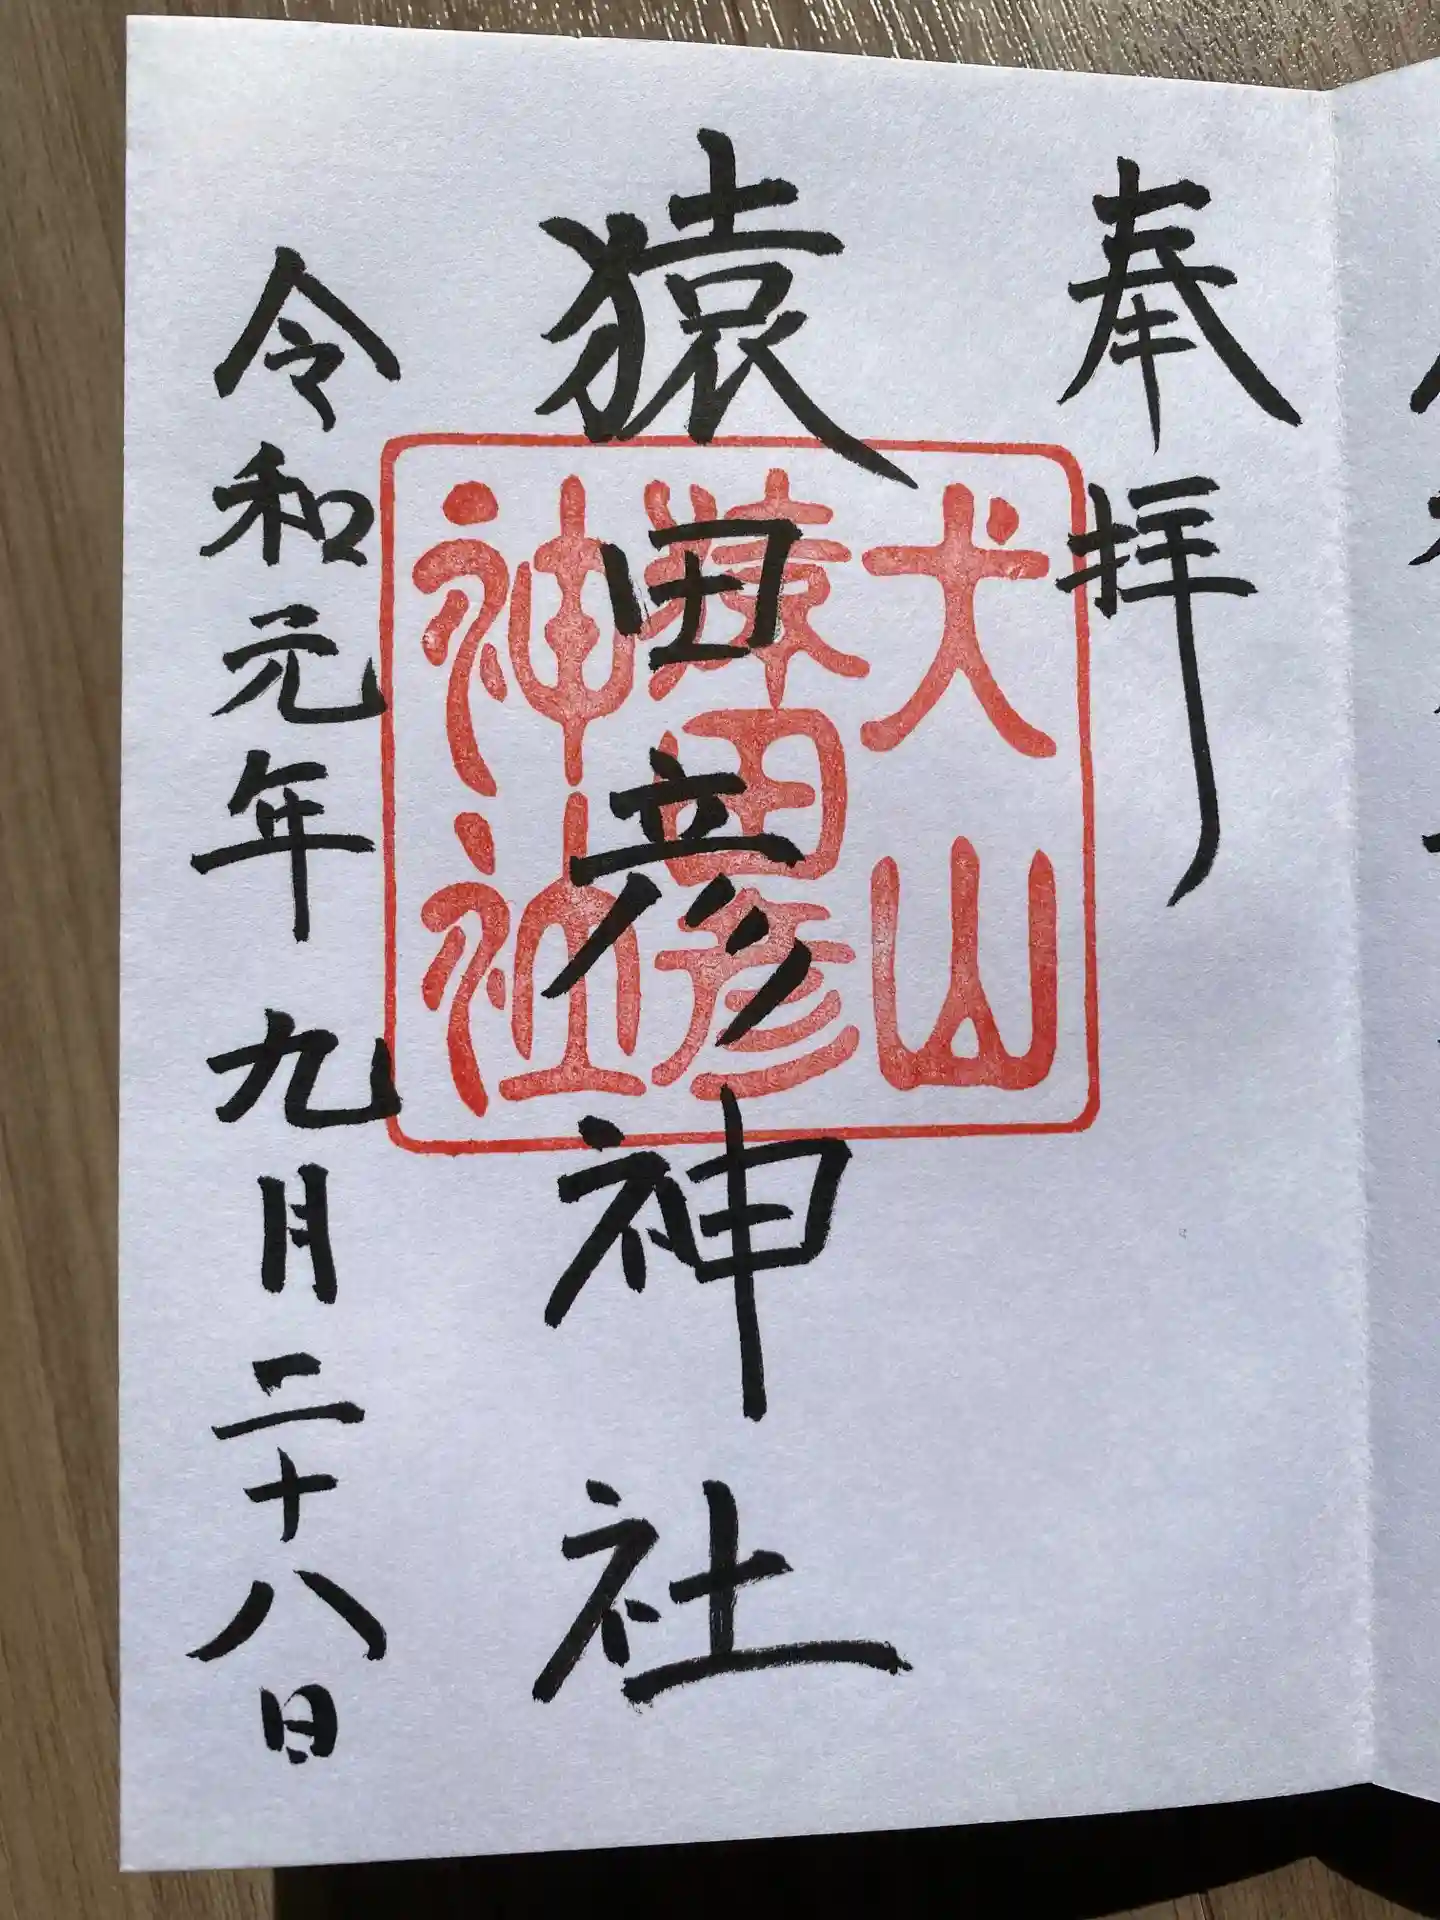 奉拝
猿田彦神社
犬山
猿田彦
神社
令和元年九月二十八日